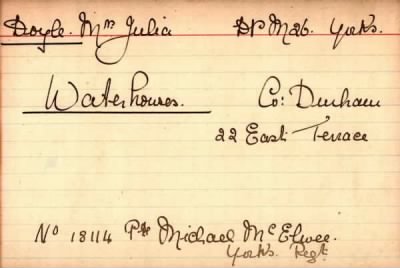 Doyle. Mrs Julia DP M26. Yorks.
Waterhouses. Co: Durham
22 East Terrace
No 18114 Pte Michael McElwee.
Yorks. Regt